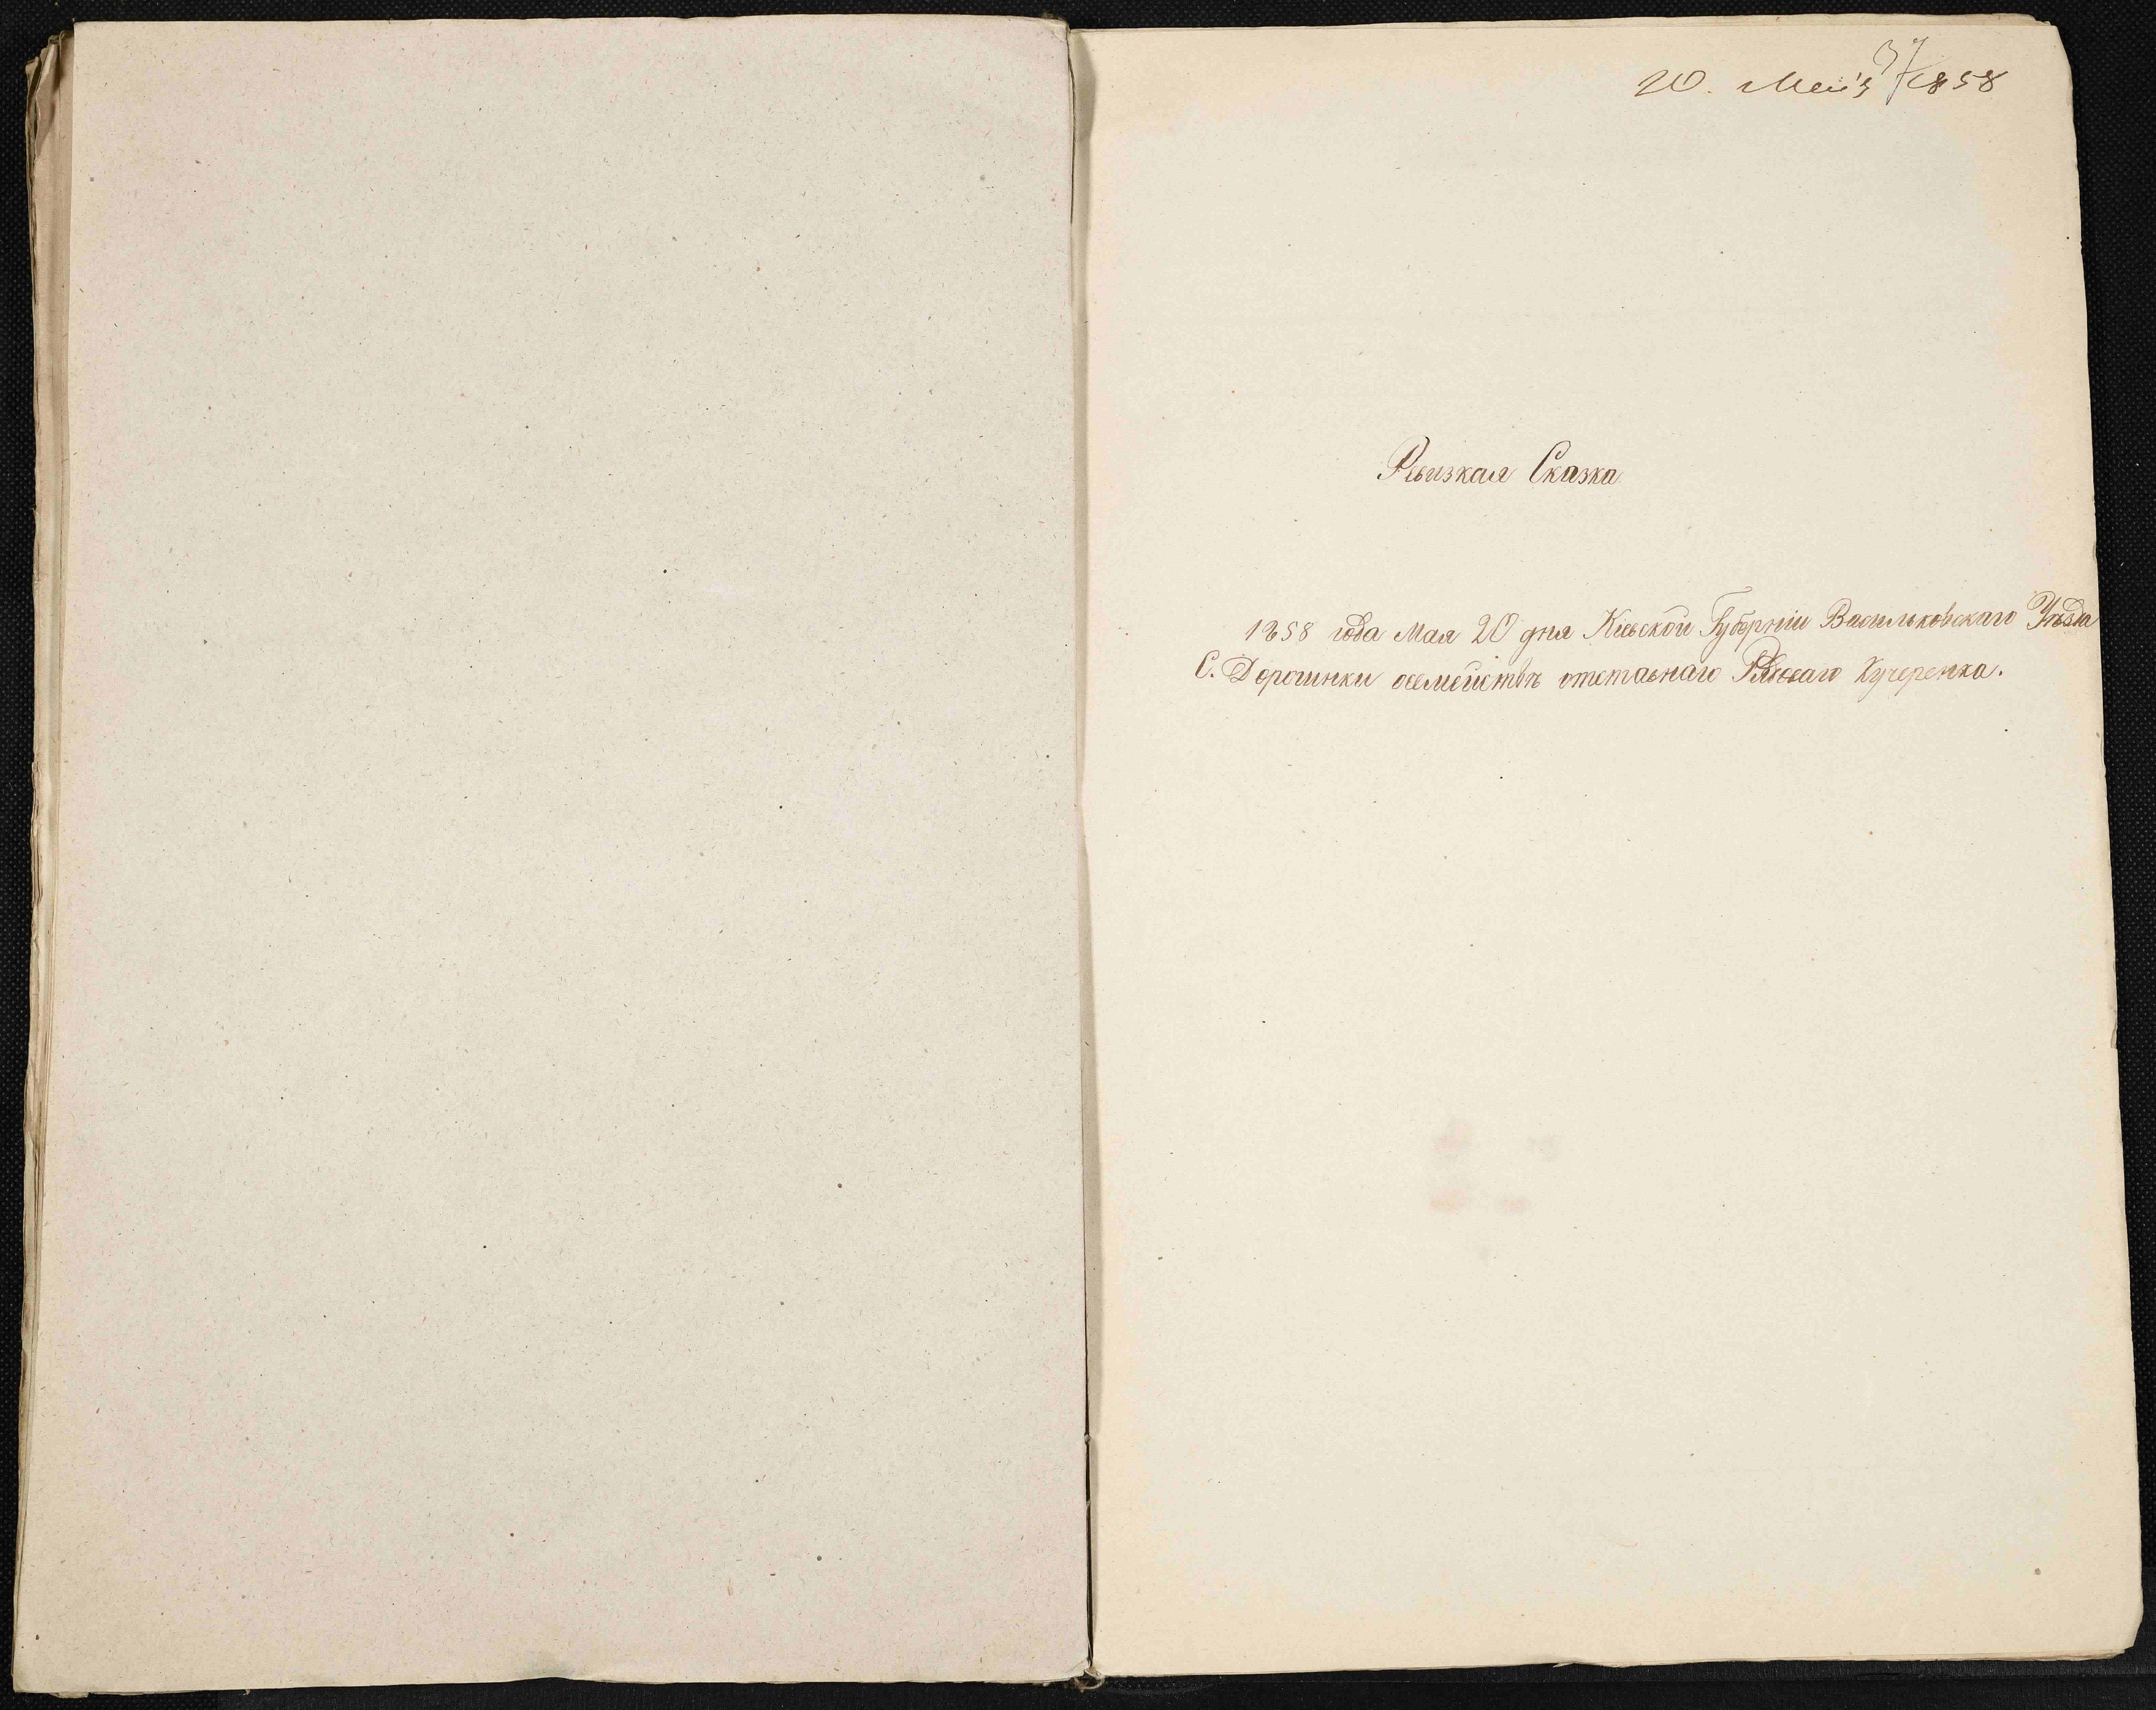 37
20. Мая 1858
Ревизкая Сказка
1858 года Мая 20 дня Кіевской Губерніи Васильковскаго Уѣзда
С. Дорогинки осемействѣ отставнаго Кучеренка.